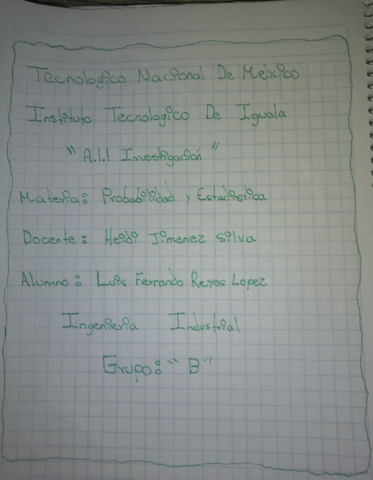 Tecnologico Nacional De México
Instituto Tecnologico De Iguala
"A.1.1 Investigación"
Materia: Probabilidad y Estadistica
Docente: Heidi Jimenez Silva
Alumno: Luis Fernando Reyes Lopez
Ingenieria Industrial
Grupo: "B"